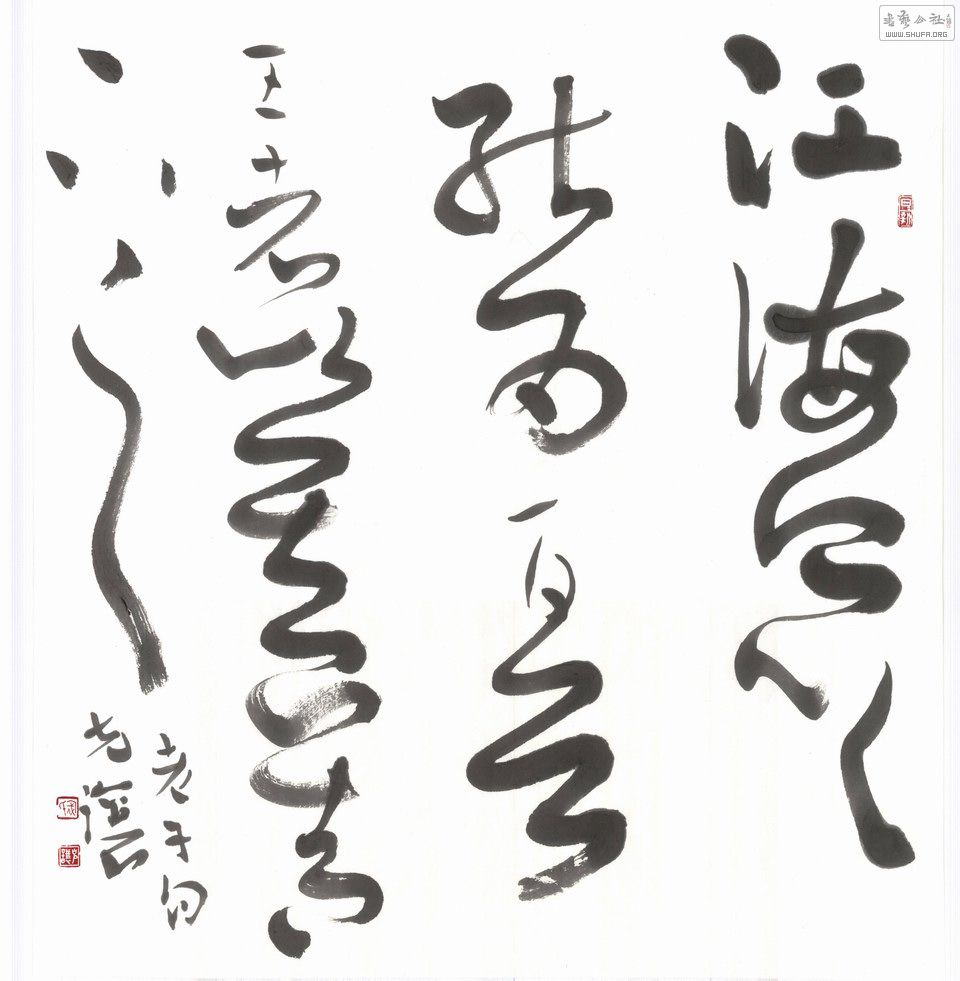 江海所以
能为百谷
王者以其善
下之
老子句
書藝公社
WWW.SHUFA.ORG